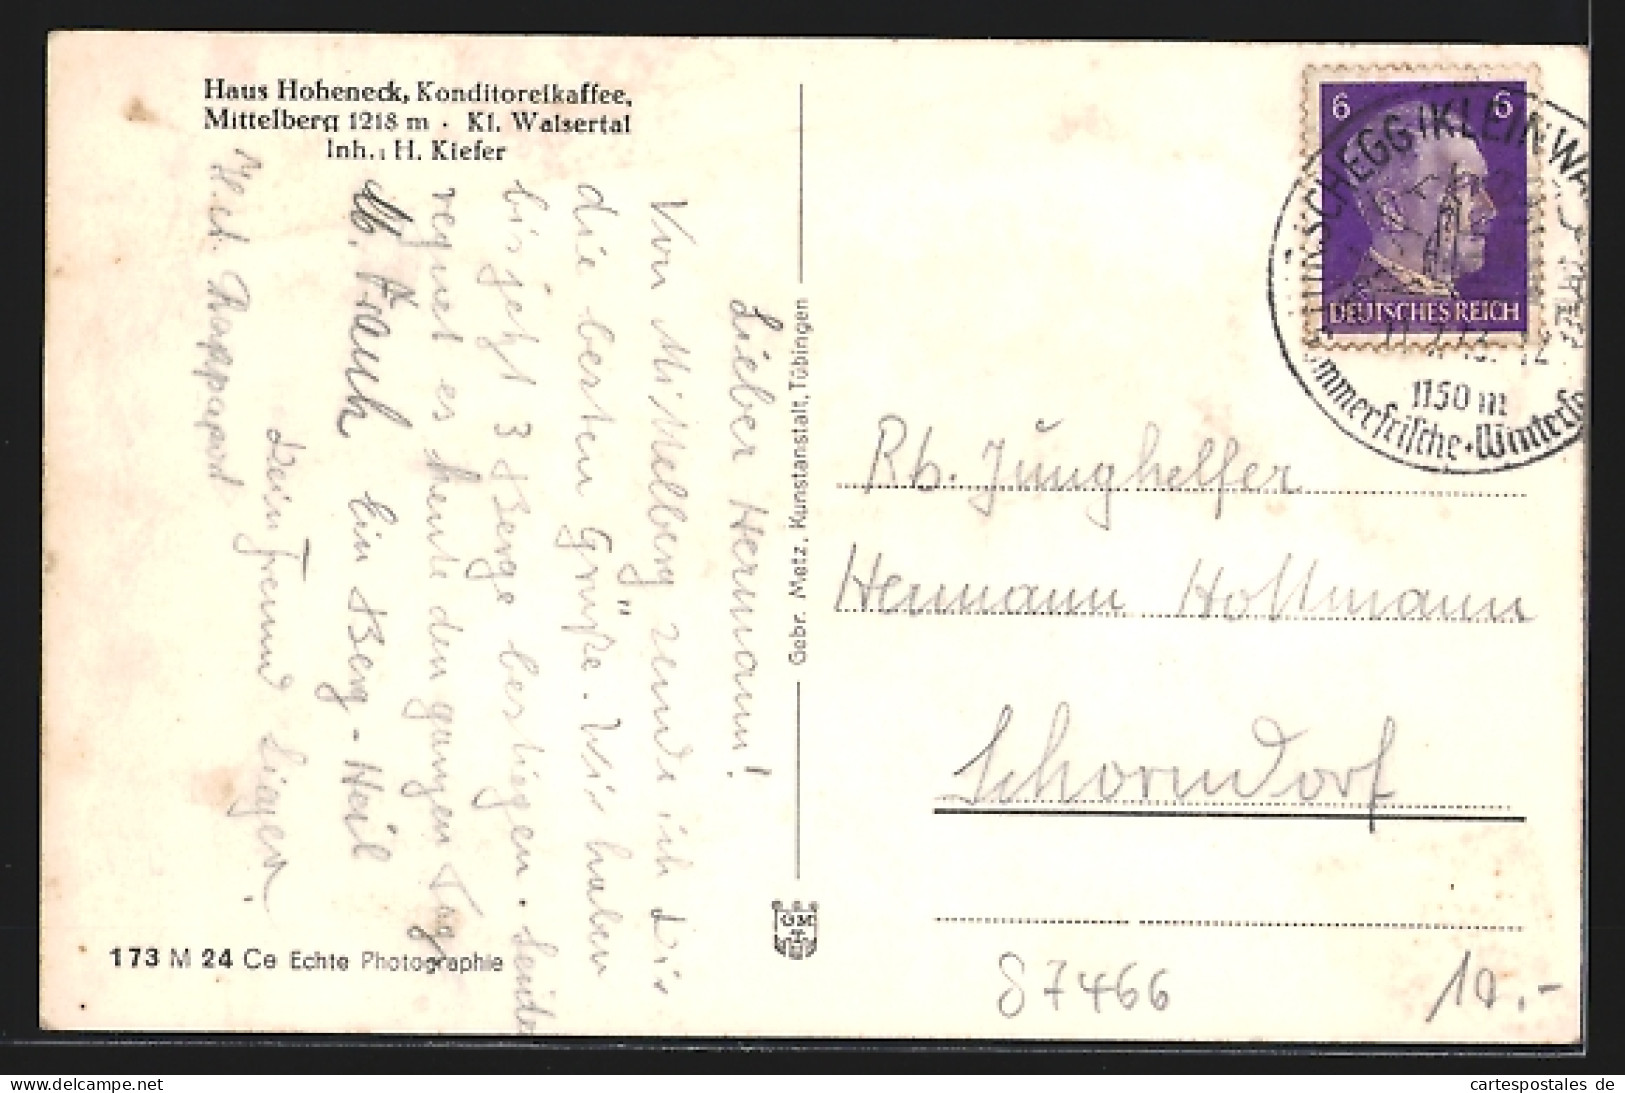 Haus Hoheneck, Konditoreikaffee,
Mittelberg 1218 m · Kl. Walsertal
Inh.: H. Kiefer
Lieber Hermann!
Von Mittelberg sende ich Dir
die besten Grüße. Wir haben
bis jetzt 3 Berge bestiegen. Leider
regnet es heute den ganzen Tag
Mb. Frank ein Berg-Heil
Dein Freund
173 M 24 Ce Echte Photographie
Gebr. Metz, Kunstanstalt, Tübingen
GMT
6 6
DEUTSCHES REICH
HIRSCHEGG (KLEINWA
1150 m
Sommerfrische · Winters
Rb. Junghelfer
Hermann Hottmann
Schorndorf
87466
10.-
www.cartespostales.de
cartespostales de